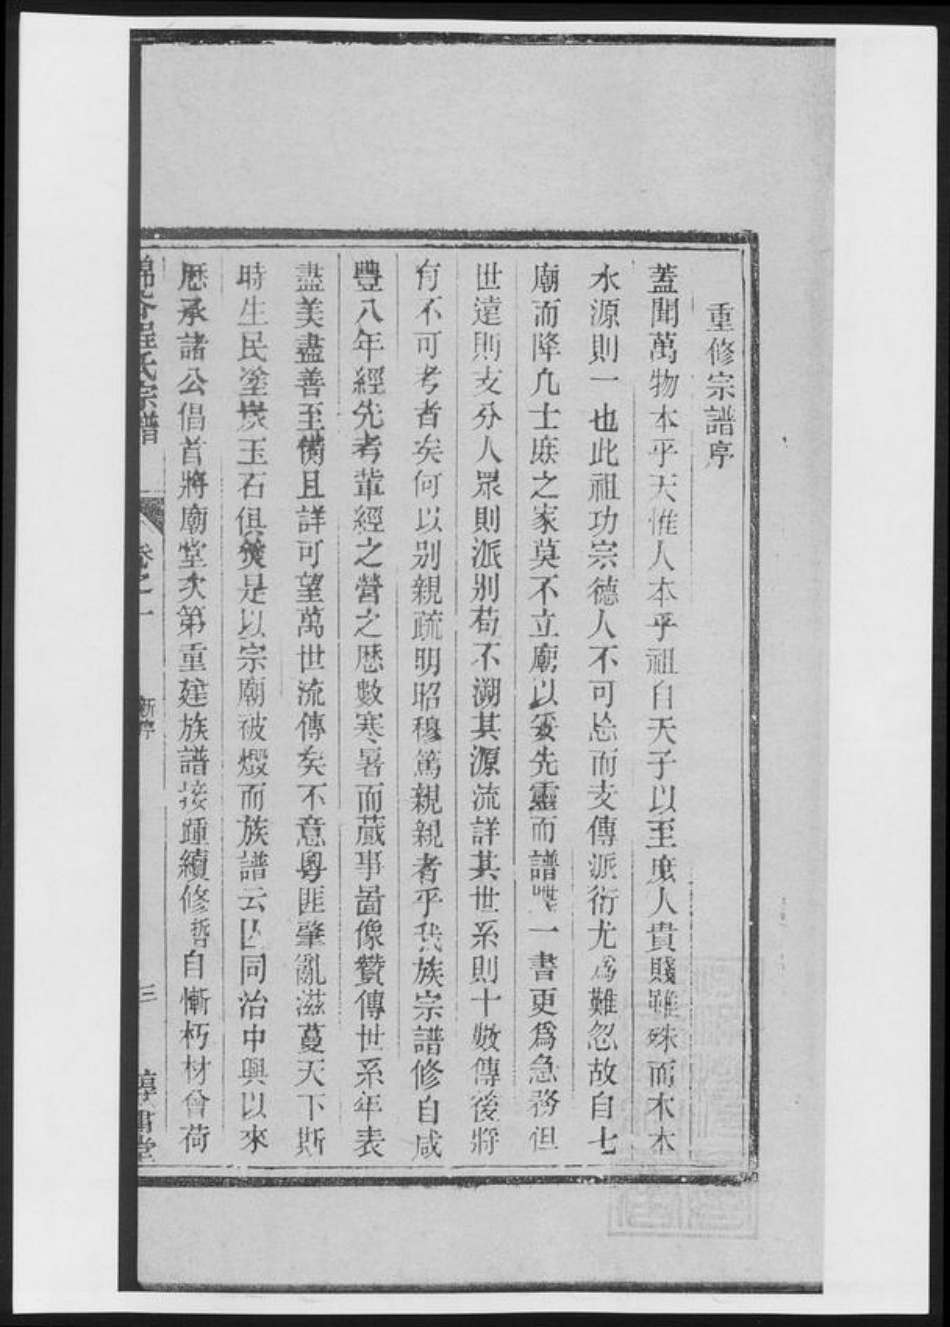 重修宗譜序
蓋聞萬物本乎天惟人本乎祖自天子以至庻人貴賤雖殊而木本
水源則一也此祖功宗德人不可忘而支傳派衍尤爲難忽故自七
廟而降凢士庶之家莫不立廟以妥先靈而譜牒一書更爲急務但
世遠則支分人眾則派别苟不溯其源流詳其世系則十數傳後將
有不可考者矣何以别親疏明昭穆篤親親者乎我族宗譜修自咸
豐八年經先考輩經之營之歷數寒暑而蕆事啚像贊傳世系年表
盡美盡善至備且詳可望萬世流傳矣不意粵匪肇亂滋蔓天下斯
時生民塗炭玉石俱焚是以宗廟被燬而族譜云亾同治中興以來
歷承諸公倡首將廟堂次第重建族譜接踵續修哲自慚朽材曾荷
程氏宗譜
卷之一
新序
三
惇書堂